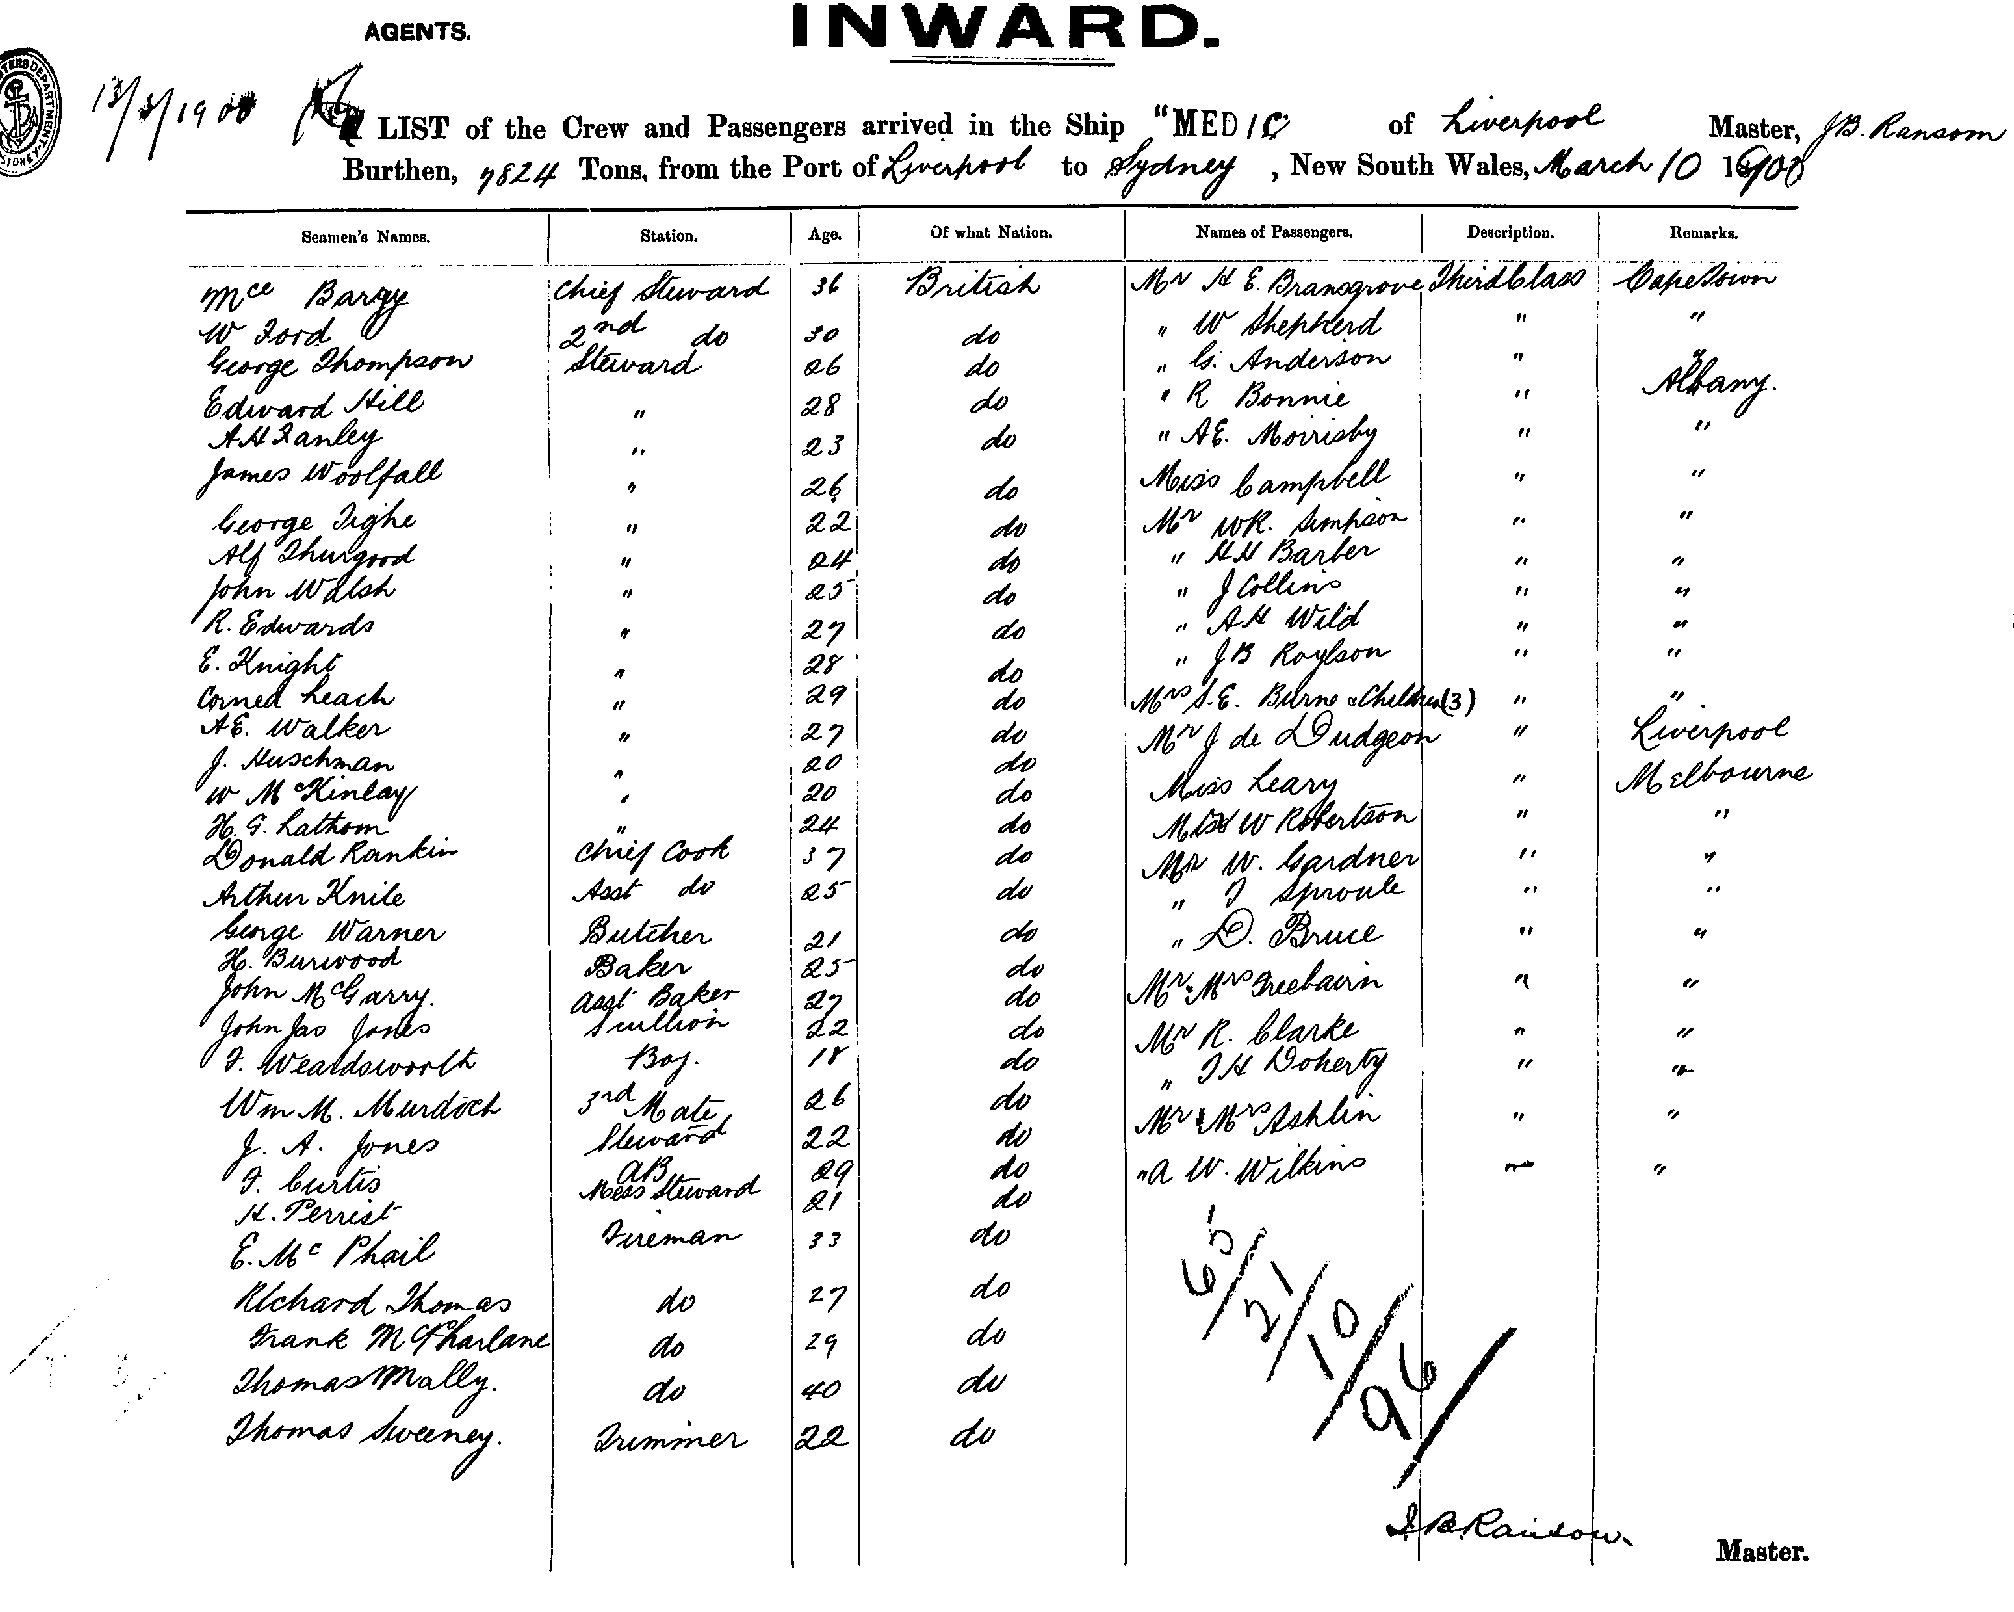 AGENTS.
INWARD.
13/3/1900
LIST of the Crew and Passengers arrived in the Ship "MEDIC of Liverpool Master, JB. Ransom
Burthen, 7824 Tons, from the Port of Liverpool to Sydney, New South Wales, March 10 1900
Seamen's Names. Station. Age. Of what Nation. Names of Passengers. Description. Remarks.
Mce Bargy Chief Steward 36 British Mr H E. Bransgrove Third Class Cape Town
W Ford 2nd do 30 do " W Shepherd " "
George Thompson Steward 26 do " G. Anderson " "
Edward Hill " 28 do " R Bonnie " Albany.
A H Fanley " 23 do " A E. Moirisby " "
James Woolfall " 26 do Miss Campbell " "
George Tighe " 22 do Mr WR. Simpson " "
Alf Thurgood " 24 do " H H Barber " "
John Walsh " 25 do " J Collins " "
R. Edwards " 27 do " A H Wild " "
E. Knight " 28 do " J B Roylson " "
Corned Leach " 29 do Mrs S. E. Burns & Children (3) " "
A E. Walker " 27 do Mr J de Dudgeon " Liverpool
J. Huschman " 20 do Miss Leary " Melbourne
W McKinlay " 20 do W Robertson " "
H. G. Lathom " 24 do Mr W. Gardner " "
Donald Rankin Chief Cook 37 do " T Sproule " "
Arthur Knile Asst do 25 do " D. Bruce " "
George Warner Butcher 21 do Mr & Mrs Freebairn " "
H. Burwood Baker 25 do Mr R. Clarke " "
John McGarry. Asst Baker 27 do " T H Doherty " "
John Jas Jones Scullion 22 do Mr & Mrs Ashlin " "
F. Weardsworth Boy. 18 do " A W. Wilkins " "
Wm M. Murdoch 3rd Mate 26 do
J. A. Jones Steward 22 do
F. Curtis AB 29 do
H. Perrist Mess Steward 21 do
E. Mc Phail Fireman 33 do
Richard Thomas do 27 do
Frank McPharlane do 29 do
Thomas Mally. do 40 do
Thomas Sweeney. Trimmer 22 do
65/21/10/96/
J B Ransom.
Master.